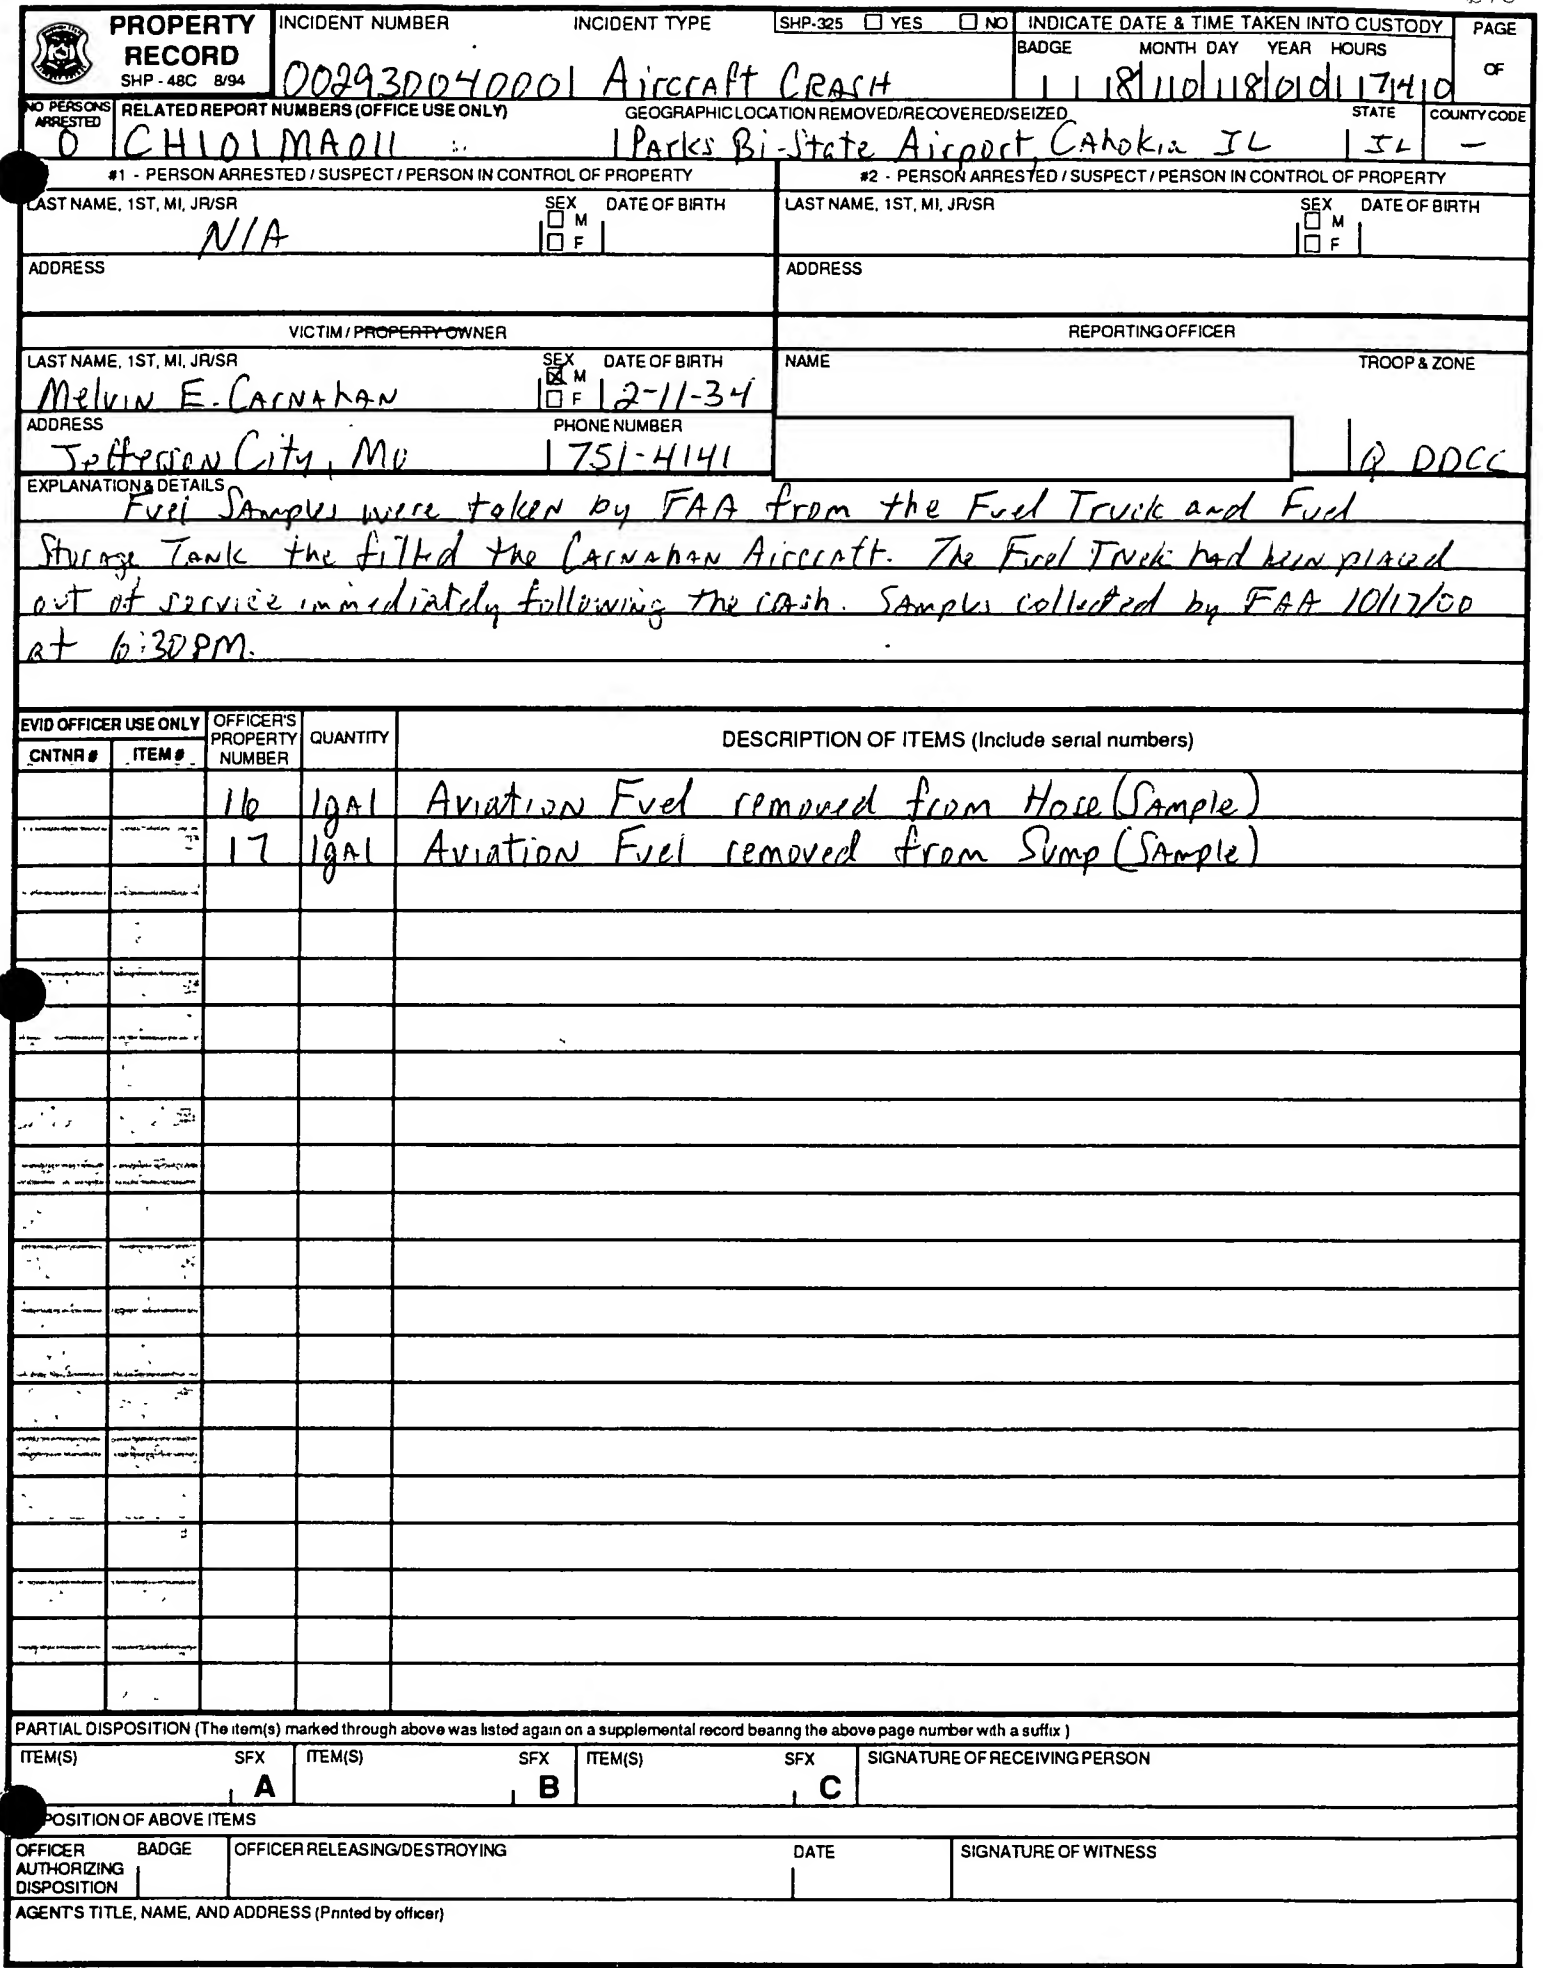 PROPERTY RECORD
SHP - 48C 8/94
INCIDENT NUMBER
002930040001
INCIDENT TYPE
Aircraft CRASH
SHP-325 ☐ YES ☐ NO
INDICATE DATE & TIME TAKEN INTO CUSTODY
BADGE MONTH DAY YEAR HOURS
PAGE
OF
NO PERSONS ARRESTED
0
RELATED REPORT NUMBERS (OFFICE USE ONLY)
CHI01MA011
GEOGRAPHIC LOCATION REMOVED/RECOVERED/SEIZED
Parks Bi-State Airport, Cahokia IL
STATE
IL
COUNTY CODE
—
#1 - PERSON ARRESTED / SUSPECT / PERSON IN CONTROL OF PROPERTY
#2 - PERSON ARRESTED / SUSPECT / PERSON IN CONTROL OF PROPERTY
LAST NAME, 1ST, MI, JR/SR
N/A
SEX ☐ M ☐ F
DATE OF BIRTH
LAST NAME, 1ST, MI, JR/SR
SEX ☐ M ☐ F
DATE OF BIRTH
ADDRESS
ADDRESS
VICTIM / PROPERTY OWNER
REPORTING OFFICER
LAST NAME, 1ST, MI, JR/SR
Melvin E. Carnahan
SEX ☒ M ☐ F
DATE OF BIRTH
2-11-34
NAME
TROOP & ZONE
ADDRESS
Jefferson City, Mo
PHONE NUMBER
751-4141
Q DDCC
EXPLANATION & DETAILS
Fuel Samples were taken by FAA from the Fuel Truck and Fuel
Storage Tank the filled the Carnahan Aircraft. The Fuel Truck had been placed
out of service immediately following the crash. Samples collected by FAA 10/17/00
at 6:30PM.
EVID OFFICER USE ONLY
CNTNR # ITEM #
OFFICER'S PROPERTY NUMBER
QUANTITY
DESCRIPTION OF ITEMS (Include serial numbers)
16 1gal Aviation Fuel removed from Hose (Sample)
17 1gal Aviation Fuel removed from Sump (Sample)
PARTIAL DISPOSITION (The item(s) marked through above was listed again on a supplemental record bearing the above page number with a suffix )
ITEM(S) SFX A
ITEM(S) SFX B
ITEM(S) SFX C
SIGNATURE OF RECEIVING PERSON
POSITION OF ABOVE ITEMS
OFFICER AUTHORIZING DISPOSITION
BADGE
OFFICER RELEASING/DESTROYING
DATE
SIGNATURE OF WITNESS
AGENT'S TITLE, NAME, AND ADDRESS (Printed by officer)